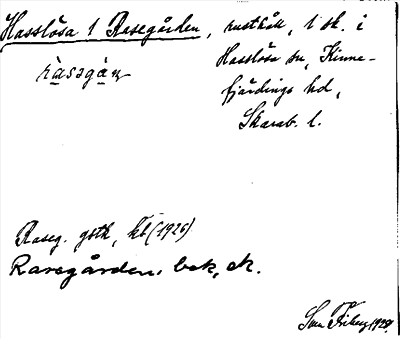 Hasslösa 1 Rasegården, rusthåll, 1 sk. i
Hasslösa sn, Kinne-
fjärdings hd,
Skarab. l.
ràsegàṇ
Raseg. gstk, kb (1926)
Rasegården, bek, ek.
Sven Friberg 1928.